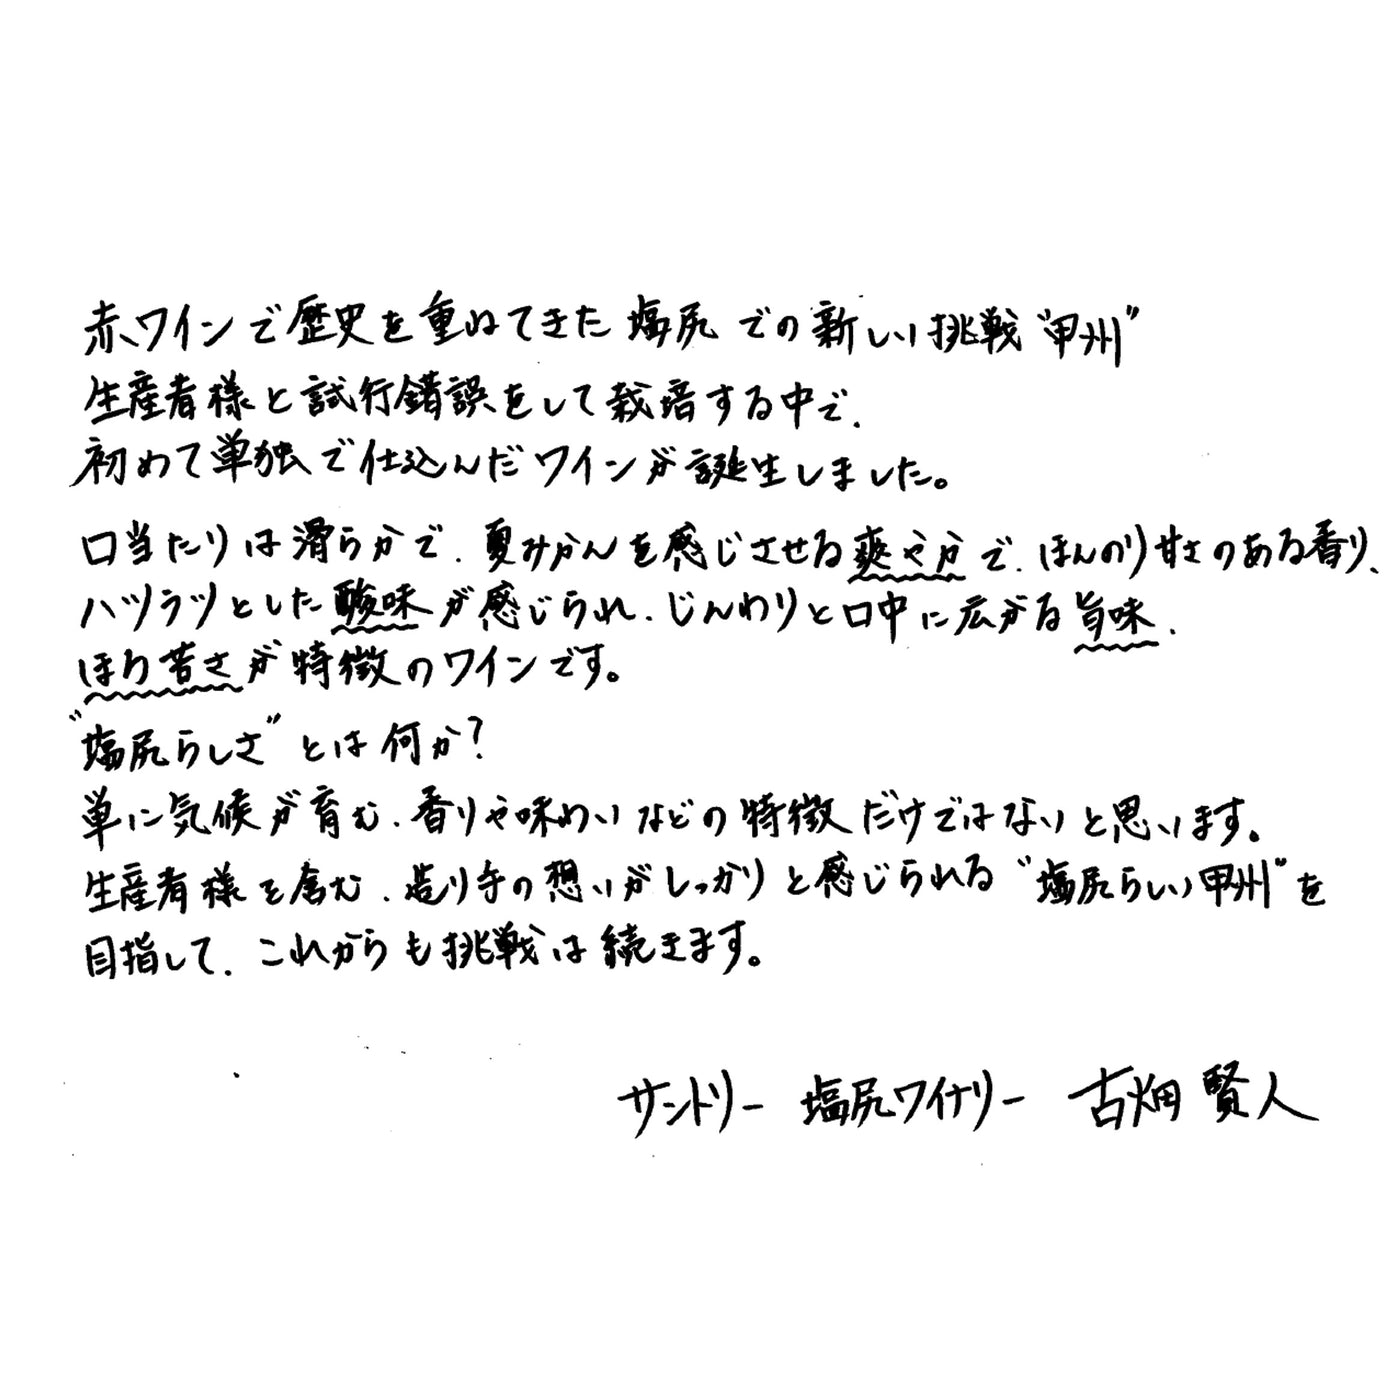 赤ワインで歴史を重ねてきた塩尻での新しい挑戦“甲州”
生産者様と試行錯誤をして栽培する中で、
初めて単独で仕込んだワインが誕生しました。
口当たりは滑らかで、夏みかんを感じさせる爽やかで、ほんのり甘さのある香り、
ハツラツとした酸味が感じられ、じんわりと口中に広がる旨味、
ほろ苦さが特徴のワインです。
“塩尻らしさ”とは何か?
単に気候が育む、香りや味わいなどの特徴だけではないと思います。
生産者様を含む、造り手の想いがしっかりと感じられる“塩尻らしい甲州”を
目指して、これからも挑戦は続きます。
サントリー 塩尻ワイナリー 古畑 賢人